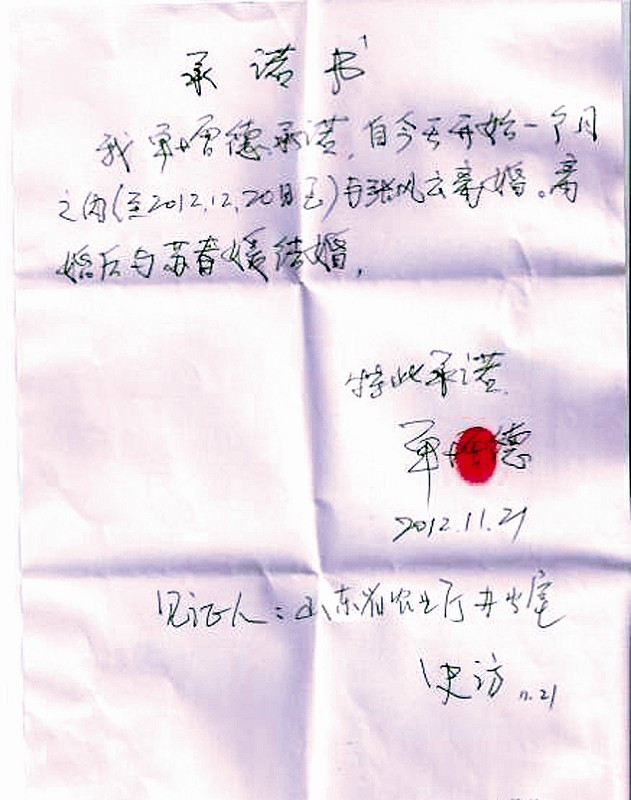 承诺书
我单增德承诺,自今天开始一个月
之内(至2012.12.20日至)与张风云离婚。离
婚后与苏春媛结婚,
特此承诺
单增德
2012.11.21
见证人:山东省农业厅办公室
史访 11.21